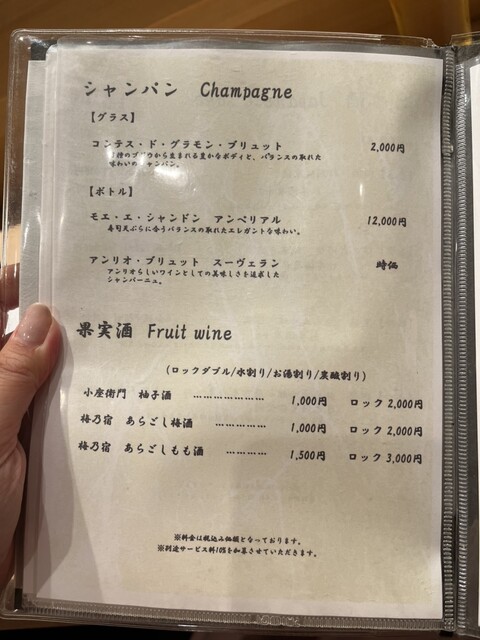 シャンパン Champagne
【グラス】
コンテス・ド・グラモン・ブリュット 2,000円
種のブドウから生まれる豊かなボディと、バランスの取れた
味わいのシャンパン。
【ボトル】
モエ・エ・シャンドン アンペリアル 12,000円
寿司天ぷらに合うバランスの取れたエレガントな味わい。
アンリオ・ブリュット スーヴェラン 時価
アンリオらしいワインとしての美味しさを追求した
シャンパーニュ。
果実酒 Fruit wine
(ロックダブル/水割り/お湯割り/炭酸割り)
小座衛門 柚子酒 ……………… 1,000円 ロック 2,000円
梅乃宿 あらごし梅酒 ………… 1,000円 ロック 2,000円
梅乃宿 あらごしもも酒 ………… 1,500円 ロック 3,000円
※料金は税込み価額となっております。
※別途サービス料10%を加算させていただきます。